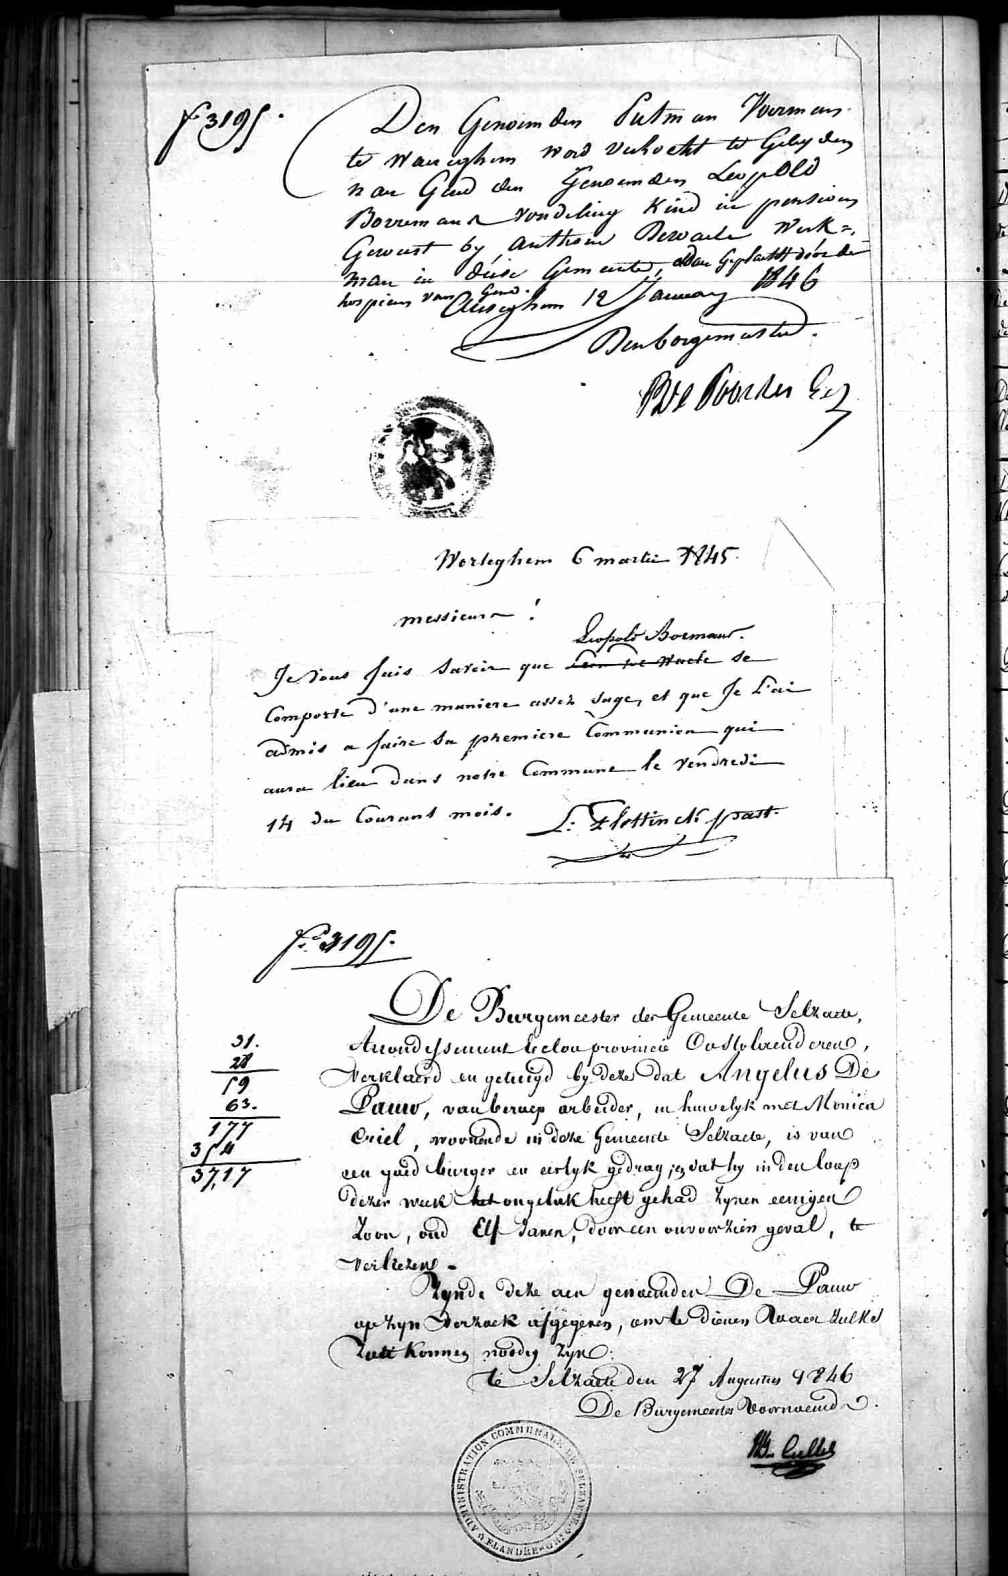 fo 3195.
Den Genoemden Putman Voerman
te Waereghem word versocht te Geleyden
naer Gend den Genoemden Leopold
Borremans vondeling Kind in pensioen
Geweest by Anthone Dewaele Werk=
man in dese Gemeente, aldaer Geplaetst door de
hospicen van Gend.
12 January 1846
Den borgemeester.
Worteghem 6 martii 1845.
messieurs!
Leopold Boremans.
Je vous fais savoir que se
Comporte d'une maniere assez sage, et que Je L'ai
admis a faire sa premiere Communion qui
aura lieu dans notre Commune le vendredi
14 du Courant mois.
past.
fo 3195.
De Burgemeester der Gemeente Selzaete,
Arrondissement Eecloo provincie Oostvlaenderen,
31.
28
verklaerd en getuigd by deze dat Angelus De
59
63.
Pauw, van beroep arbeider, in huwelyk met Monica
177
Criel, woonende in deze Gemeente Selzaete, is van
354
37,17
een goed burger en eerlyk gedrag, en dat hy in den loop
dezer week het ongeluk heeft gehad zynen eenigen
Zoon, oud Elf Jaren, door een onvoorzien geval, te
verliezen.-
Zynde deze aen genoemden De Pauw
op zyn verzoek afgegeven, om te dienen Waer zulks
Zou konnen noodig zyn.
te Selzaete den 27 Augustus 1846
De Burgemeester Voornoemd.
ADMINISTRATION COMMUNALE DE SELZAETE
FLANDRE OR.